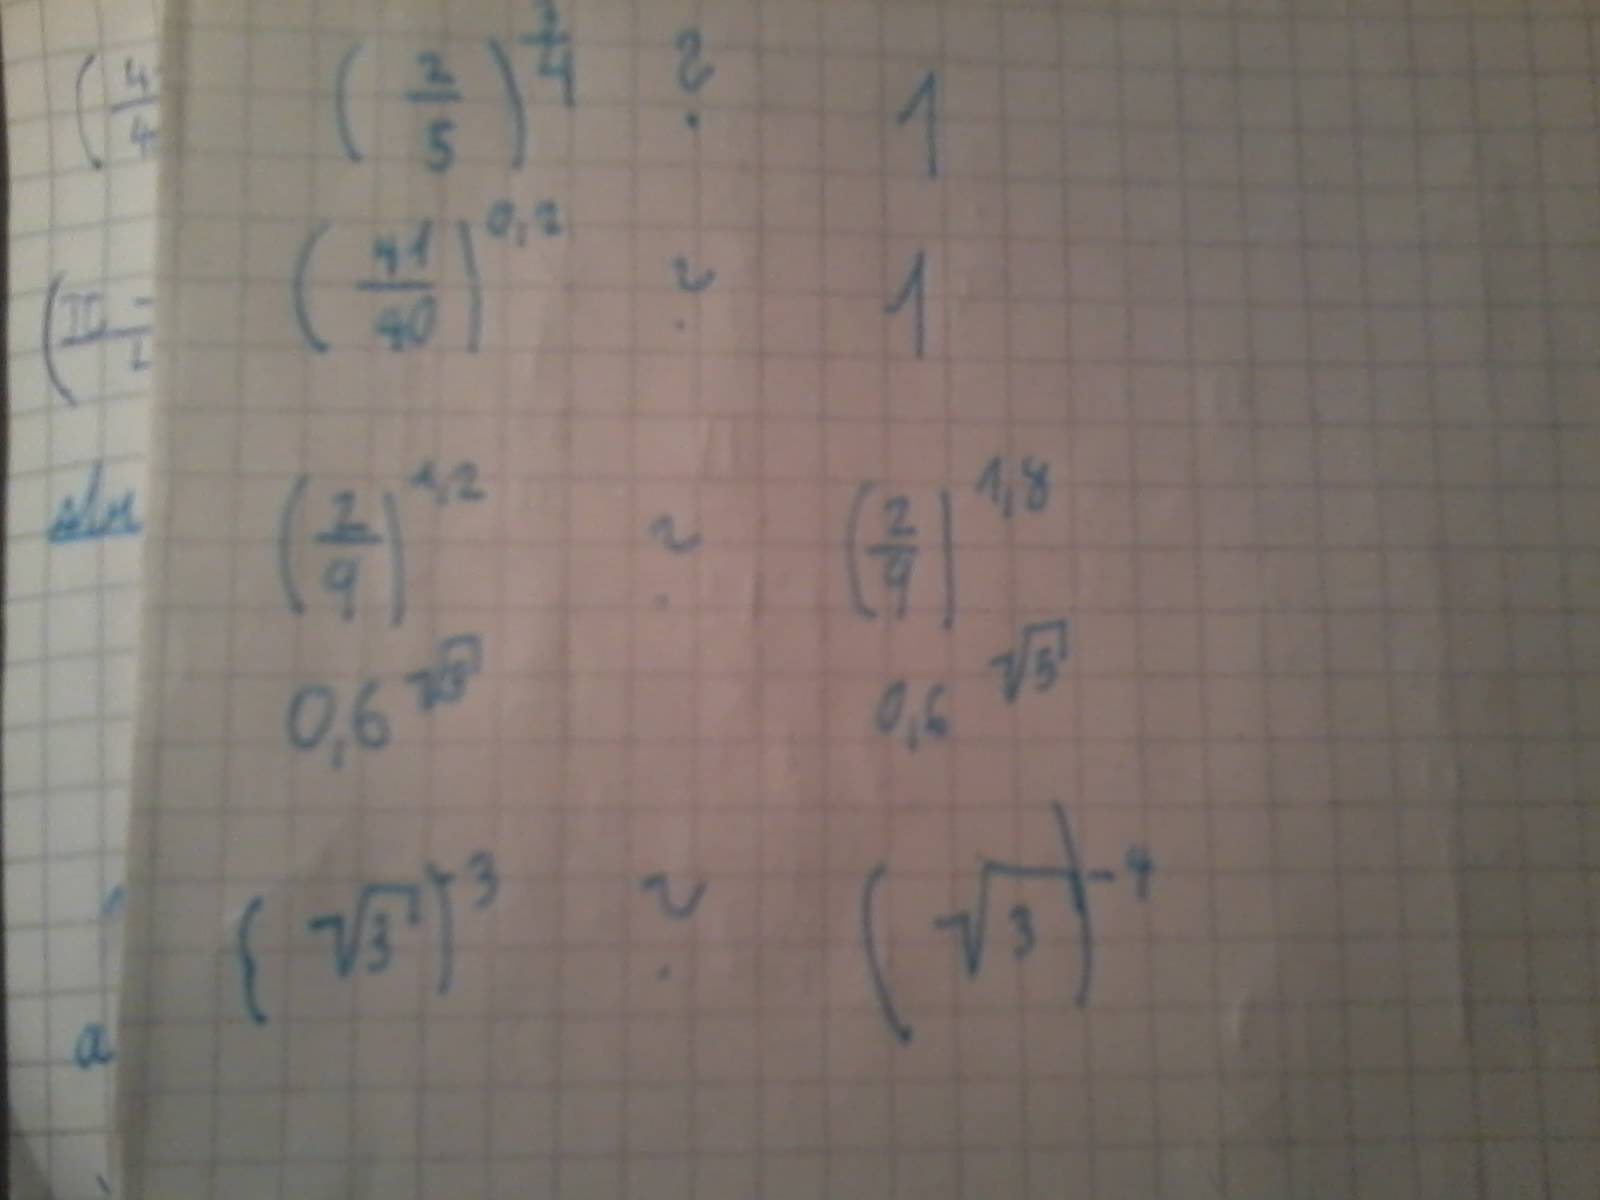 (2/5)^(7/4) ? 1
(41/40)^0,2 ? 1
(2/9)^1,2 ? (2/9)^1,8
0,6^√5 0,6^√5
(√3)^-3 ? (√3)^-4